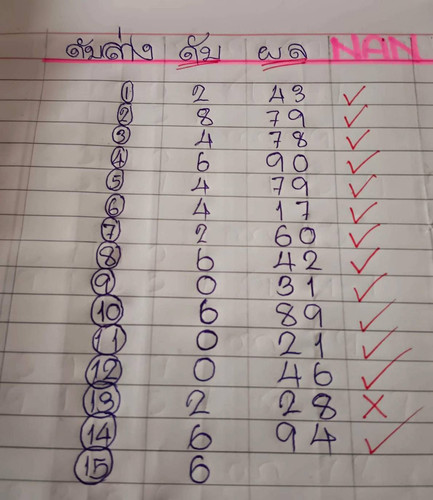 ดับล่าง ดับ ผล NAN
1 2 43 ✓
2 8 79 ✓
3 4 78 ✓
4 6 90 ✓
5 4 79 ✓
6 4 17 ✓
7 2 60 ✓
8 6 42 ✓
9 0 31 ✓
10 6 89 ✓
11 0 21 ✓
12 0 46 ✓
13 2 28 ✗
14 6 94 ✓
15 6